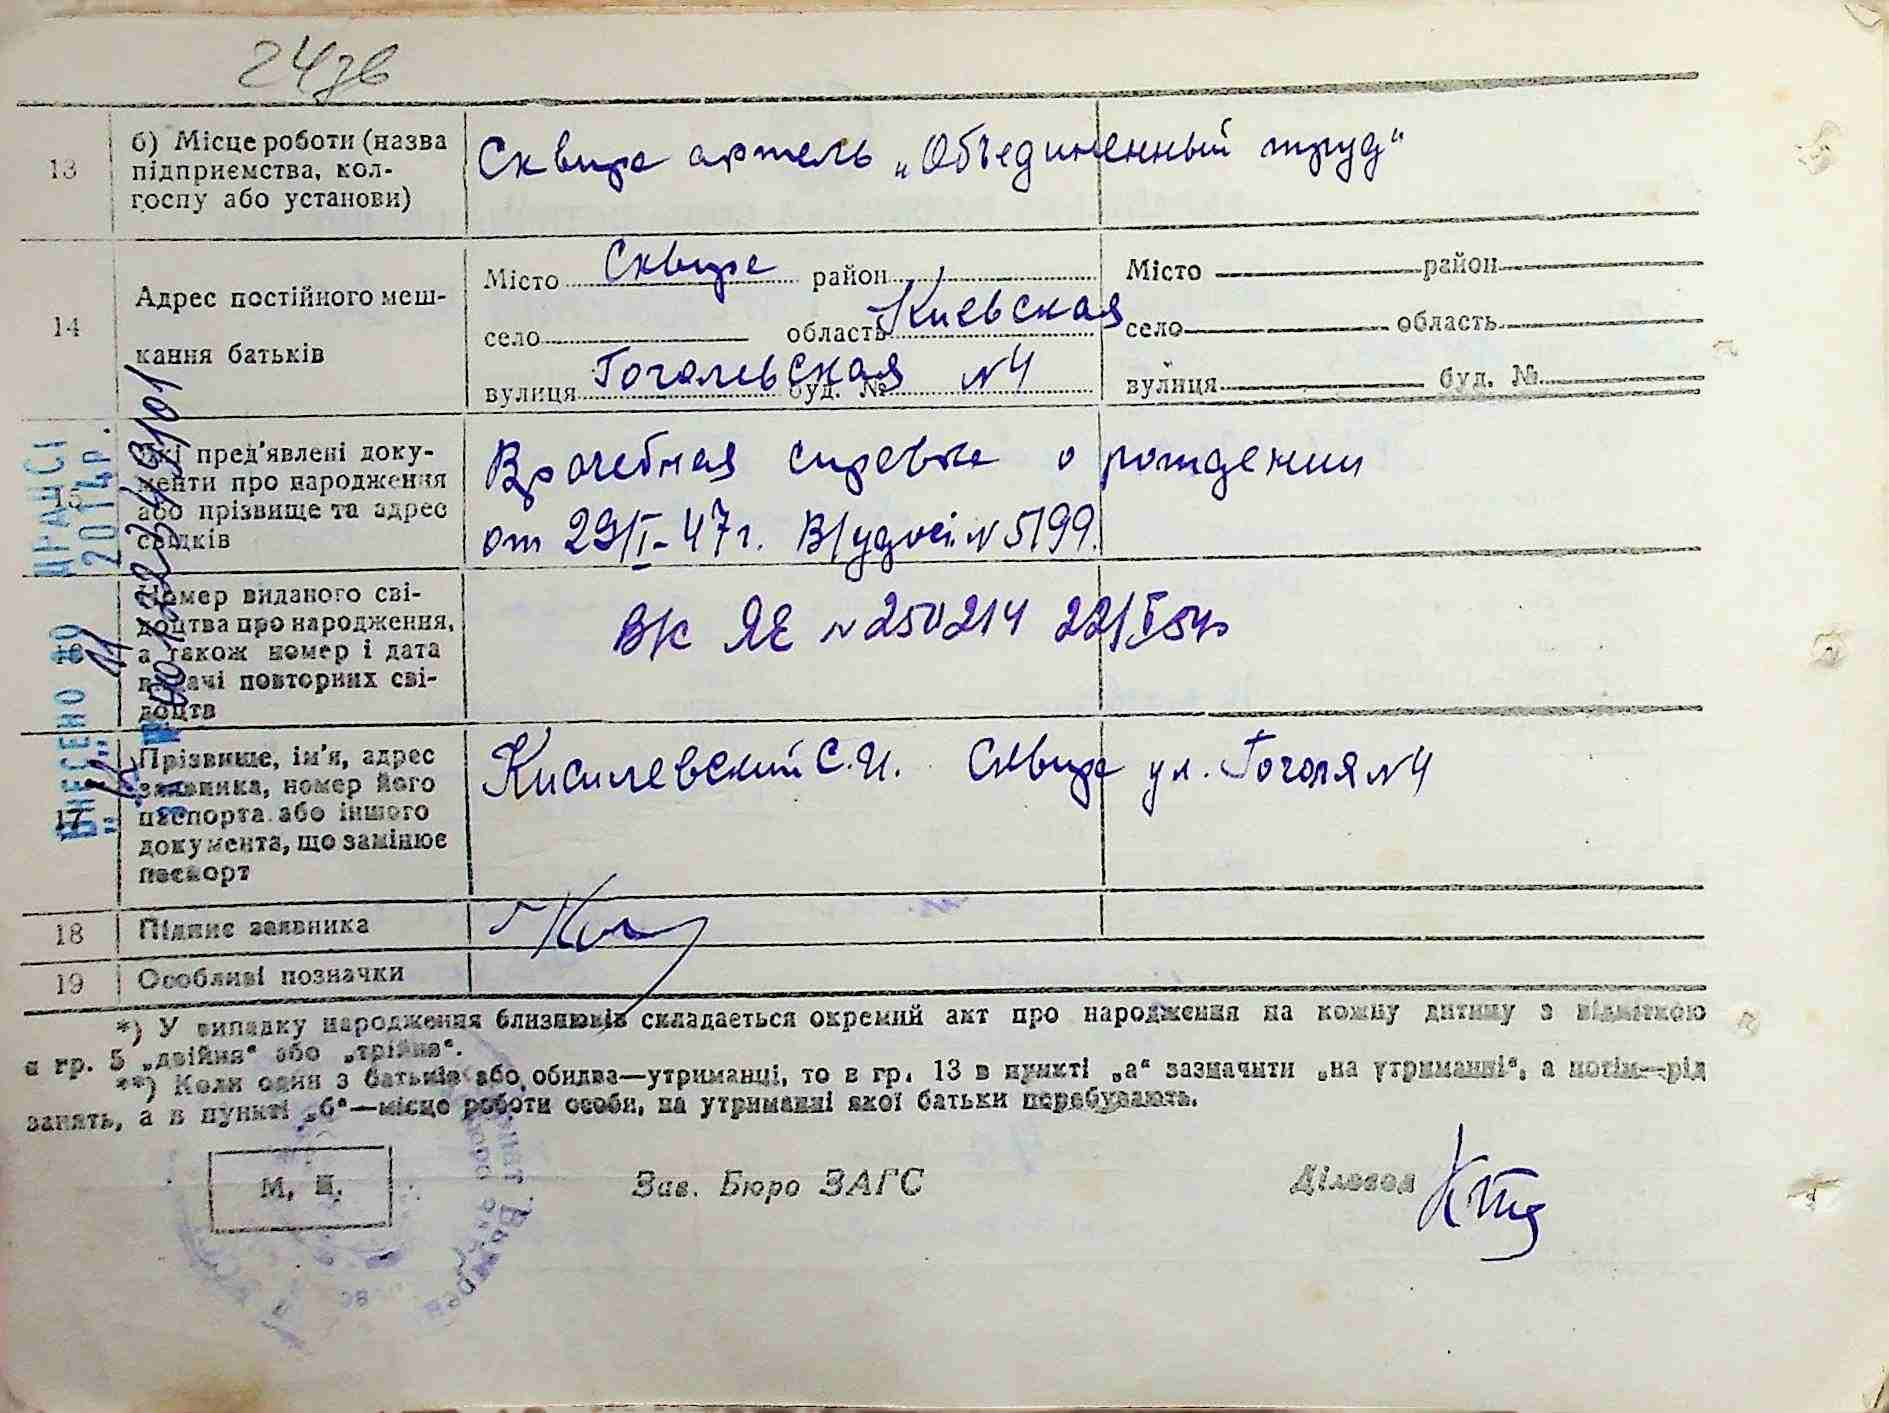 24зв
13
б) Місце роботи (назва
підприємства, кол-
госпу або установи)
Сквира артель „Объединенный труд“
14
Адрес постійного меш-
кання батьків
Місто Сквира район
село область Киевская
вулиця Гоголевская буд. № №4
Місто район
село область
вулиця буд. №
15
Які пред'явлені доку-
менти про народження
або прізвище та адрес
свідків
Врачебная справка о рождении
от 29/I-47г. В/удост. №5199.
16
Номер виданого сві-
доцтва про народження,
а також номер і дата
видачі повторних сві-
доцтв
ЯЕ №250214
17
Прізвище, ім'я, адрес
заявника, номер його
паспорта або іншого
документа, що замінює
паспорт
Кисилевский С.И. Сквира ул. Гоголя №4
18
Підпис заявника
19
Особливі позначки
*) У випадку народження близнюків складається окремий акт про народження на кожну дитину з відміткою
в гр. 5 „двійня“ або „трійня“.
**) Коли один з батьків або обидва—утриманці, то в гр. 13 в пункті „а“ зазначити „на утриманні“, а потім—рід
занять, а в пункті „б“—місце роботи особи, на утриманні якої батьки перебувають.
М. П.
Зав. Бюро ЗАГС
Діловод
ВНЕСЕНО ДО ДРАЦСІ
2014р.